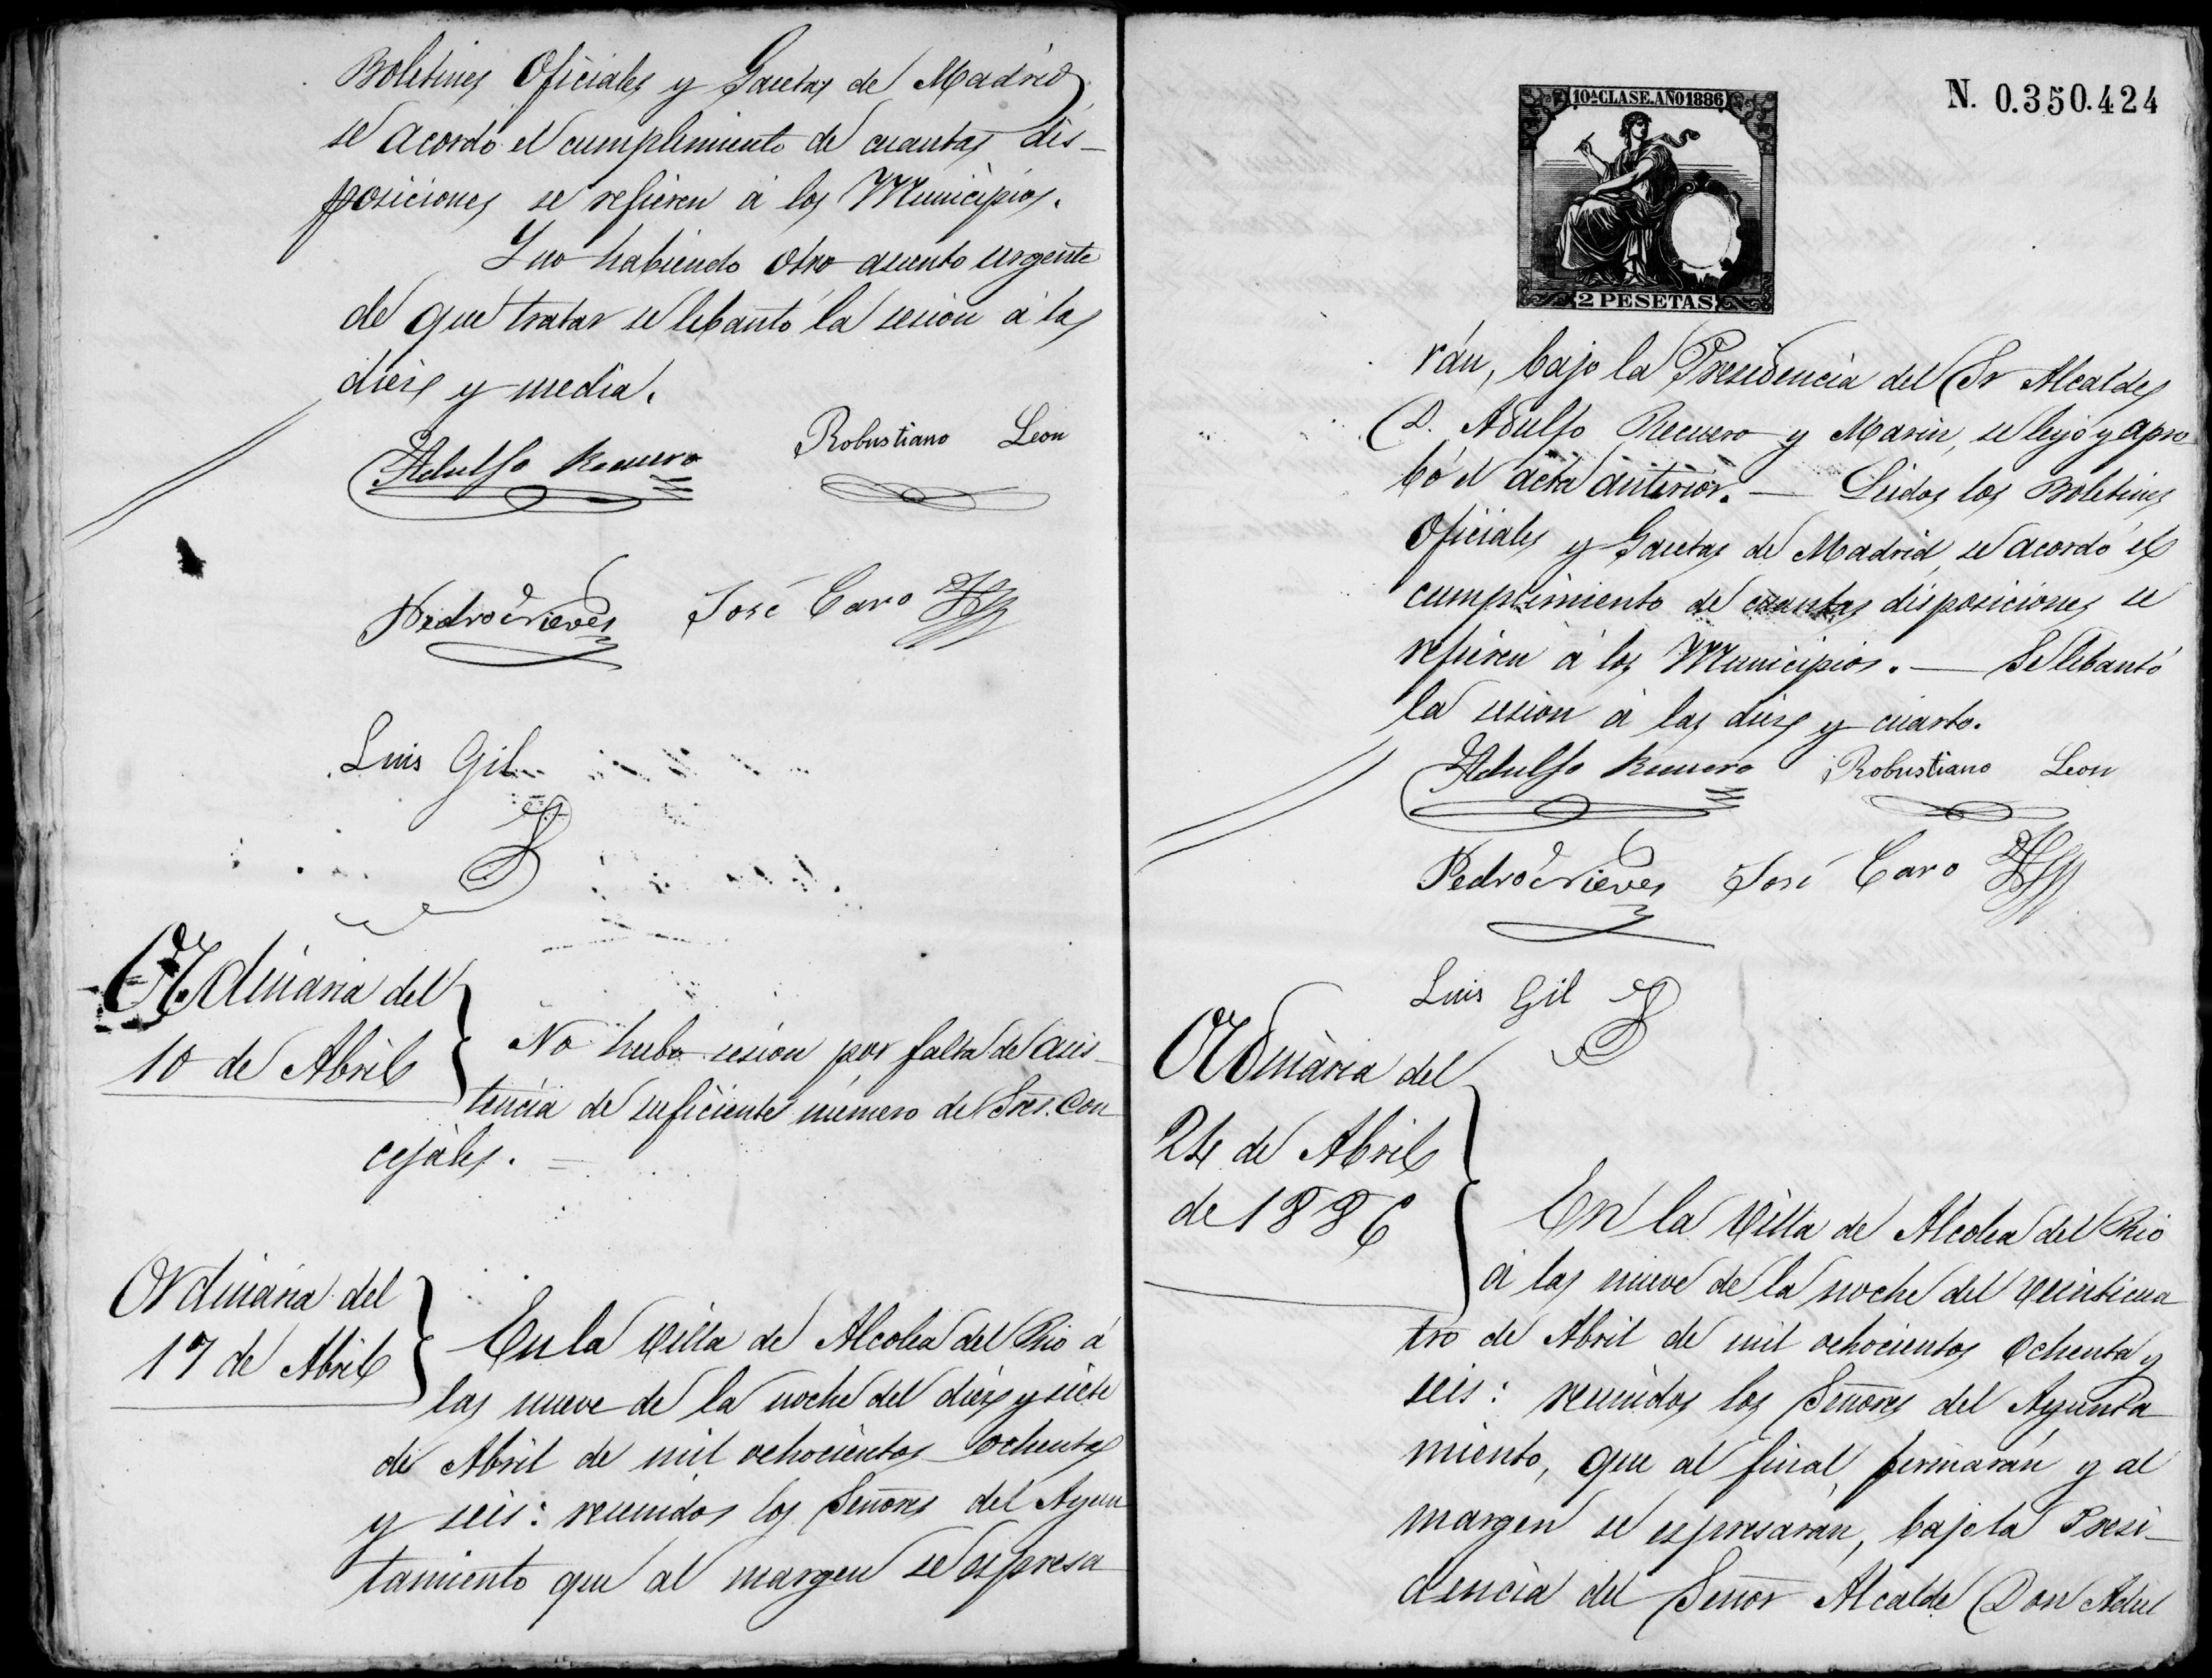 Boletines Oficiales y Gacetas de Madrid
se acordó el cumplimiento de cuantas dis-
posiciones se refieren á los Municipios.
Y no habiendo otro asunto urgente
de que tratar se lebantó la sesion á las
diez y media.
Adulfo Recuero Robustiano Leon
Pedro Nieves José Caro
Luis Gil
Ordinaria del
10 de Abril
No hubo sesion por falta de asis-
tencia de suficiente número de Sres. Con-
cejales. =
Ordinaria del
17 de Abril
En la Villa de Alcolea del Rio á
las nueve de la noche del diez y siete
de Abril de mil ochocientos ochenta
y seis: reunidos los Señores del Ayun
tamiento que al margen se espresa
N. 0.350.424
10ª CLASE. AÑO 1886
2 PESETAS
rán, bajo la Presidencia del Sr Alcalde
D. Adulfo Recuero y Marin, se leyó y apro
bó el acta anterior. — Leidos los Boletines
Oficiales y Gacetas de Madrid se acordó el
cumplimiento de cuantas disposiciones se
refieren á los Municipios. — Se lebantó
la sesion á las diez y cuarto.
Adulfo Recuero Robustiano Leon
Pedro Nieves José Caro
Luis Gil
Ordinaria del
24 de Abril
de 1886
En la Villa de Alcolea del Rio
á las nueve de la noche del veinticua
tro de Abril de mil ochocientos ochenta y
seis: reunidos los Señores del Ayunta
miento, que al final firmarán y al
margen se espresarán, bajo la Presi-
dencia del Señor Alcalde Don Adul